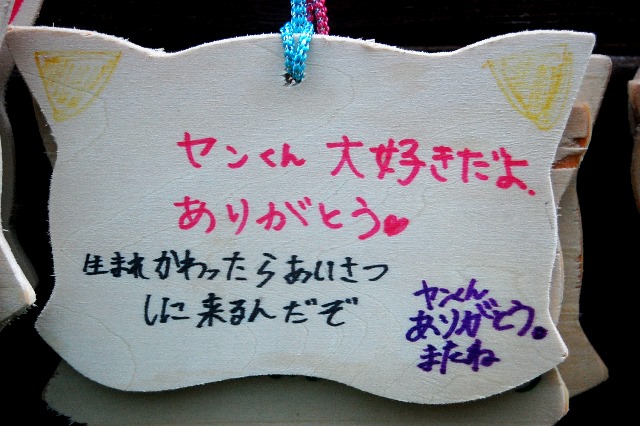 ヤンくん 大好きだよ、
ありがとう♥
生まれかわったらあいさつ
しに来るんだぞ
ヤンくん
ありがとう。
またね